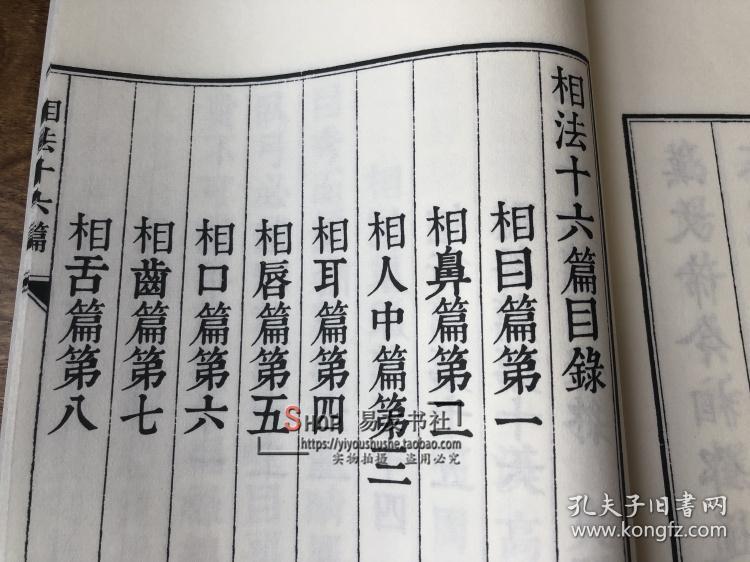 相法十六篇目錄
相目篇第一
相鼻篇第二
相人中篇第三
相耳篇第四
相唇篇第五
相口篇第六
相齒篇第七
相舌篇第八
相法十六篇
SHOP 易友书社
https://yiyoushushe.taobao.com
实物拍摄 盗用必究
孔夫子旧书网
www.kongfz.com